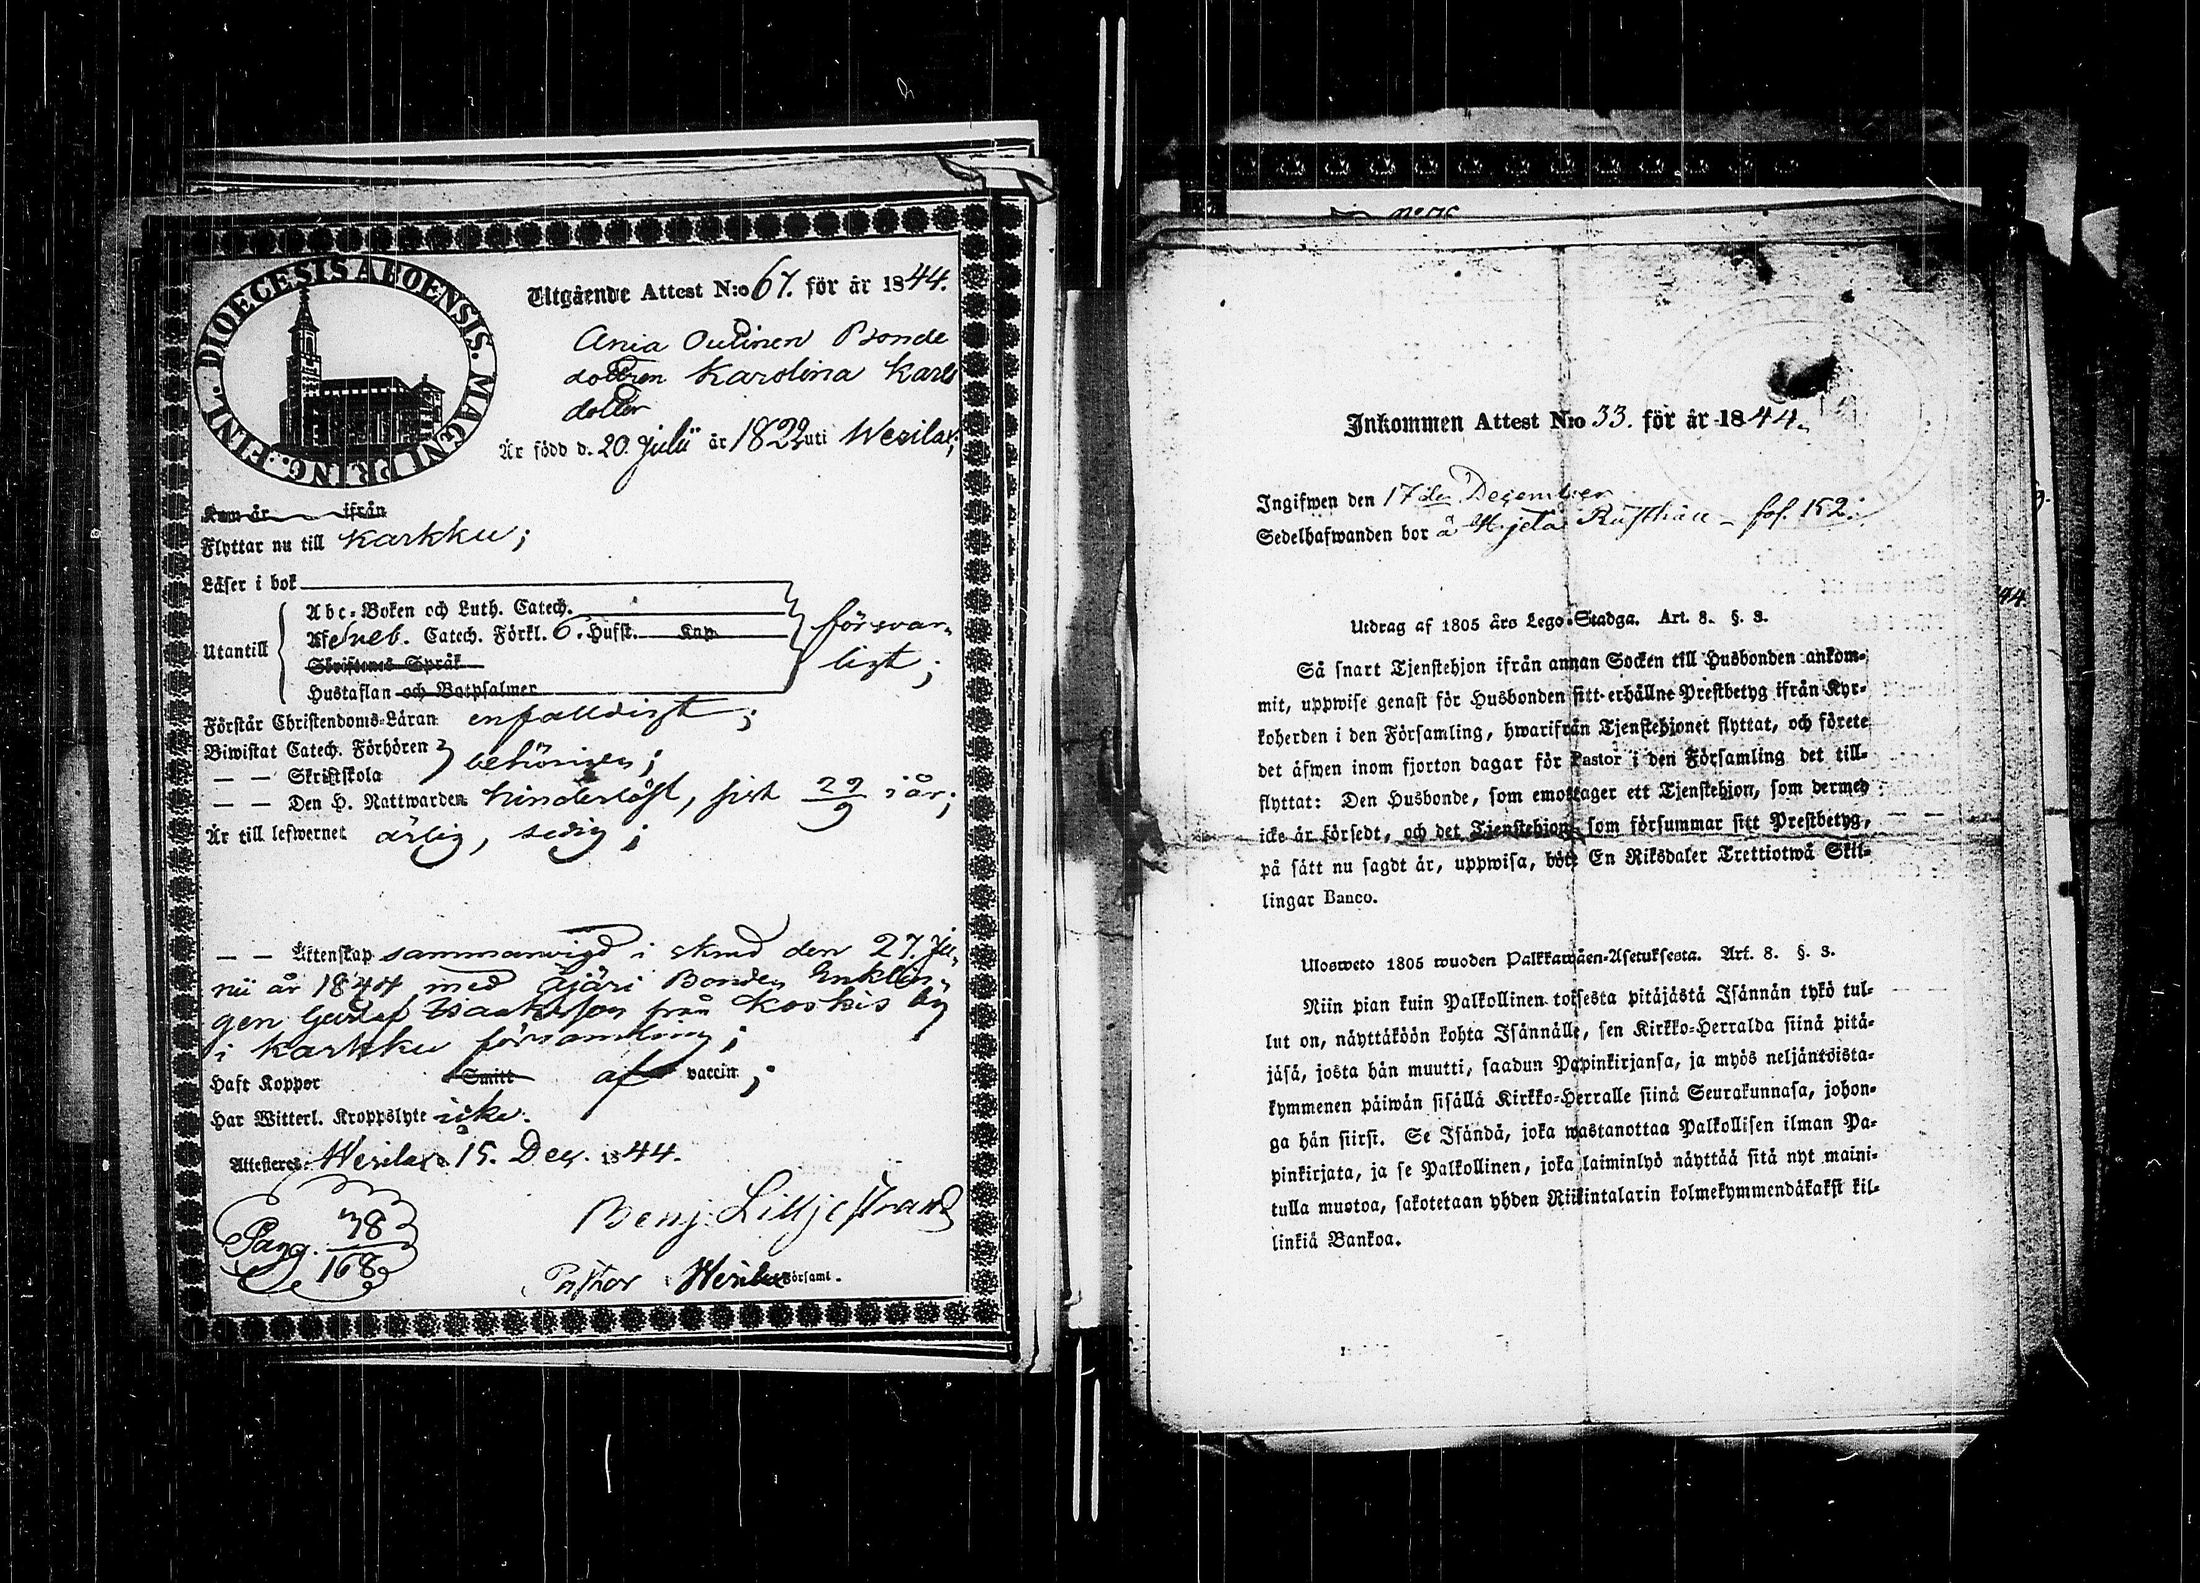 DIOECESIS ABOENSIS. MAGNI PRING. FINL.
Utgående Attest N:o 67. för år 1844.
Ania Outinen Bonde
dottren Karolina Karls
dotter
Är född d. 20. Julii år 1822 uti Wesilax;
Kom år ifrån
Flyttar nu till Karkku;
Läser i bok
Utantill
Abc-Boken och Luth. Catech.
Af Sveb. Catech. Förkl. 6. Hufst. Kap
Skriftenes Språk
Hustaflan och Botpsalmer
försvar-
ligt;
Förstår Christendoms-Läran enfalldigt;
Biwistat Catech. Förhören
— — Skriftskola
behörigen;
— — Den H. Nattwarden hinderlöst, sist 29/9 i år;
Är till lefwernet ärlig, sedig;
— — Äktenskap sammanvigd i stånd den 27. Ju-
nii år 1844 med Äjäri Bonden Enklin-
gen Gustaf Isaaksson från Koskis by
i Karkku församling;
Haft Koppor Smitt af vaccin;
Har Witterl. Kroppslyte icke.
Attesteres. Wesilax d. 15. Dec. 1844.
Pag. 78/168
Benj: Lilljestrand
Pastor i Wesilax Församl.
Inkommen Attest N:o 33. för år 1844.
Ingifwen den 17de December
Sedelhafwanden bor å Hjeta Rusthåll – fol. 152.
Utdrag af 1805 års Lego-Stadga. Art. 8. §. 3.
Så snart Tjenstehjon ifrån annan Socken till Husbonden ankom-
mit, uppwise genast för Husbonden sitt erhållne Prestbetyg ifrån Kyr-
koherden i den Församling, hwarifrån Tjenstehjonet flyttat, och förete
det äfwen inom fjorton dagar för Pastor i den Församling det till-
flyttat: Den Husbonde, som emottager ett Tjenstehjon, som dermed
icke är försedt, och det Tjenstehjon, som försummar sitt Prestbetyg,
på sätt nu sagdt är, uppwisa, böte En Riksdaler Trettiotwå Skil-
lingar Banco.
Ulosweto 1805 wuoden Palkkawäen-Asetuksesta. Art. 8. §. 3.
Niin pian kuin Palkollinen toisesta pitäjästä Isännän tykö tul-
lut on, näyttäköön kohta Isännälle, sen Kirkko-Herralda siinä pitä-
jäsä, josta hän muutti, saadun Papinkirjansa, ja myös neljäntoista-
kymmenen päiwän sisällä Kirkko-Herralle siinä Seurakunnasa, johon-
ga hän siirsi. Se Isändä, joka wastanottaa Palkollisen ilman Pa-
pinkirjata, ja se Palkollinen, joka laiminlyö näyttää sitä nyt maini-
tulla muotoa, sakotetaan yhden Riikintalarin kolmekymmendäkaksi kil-
linkiä Bankoa.